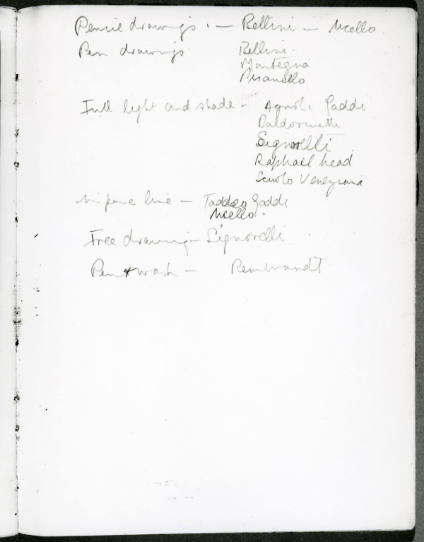 Pencil drawings. — Bellini — Ucello
Pen drawings Bellini.
Mantegna
Pisanello
Full light and shade — Agnolo Gaddi
Baldovinetti
Signorelli
Raphael head
Scuolo Veneziana
in pure line — Taddeo Gaddi
Ucello.
Free drawing — Signorelli
Pen & wash — Rembrandt